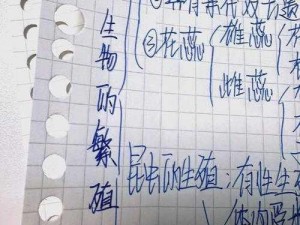 生物的繁殖
③花蕊
雄蕊
雌蕊
昆虫的生殖：有性生
体内受